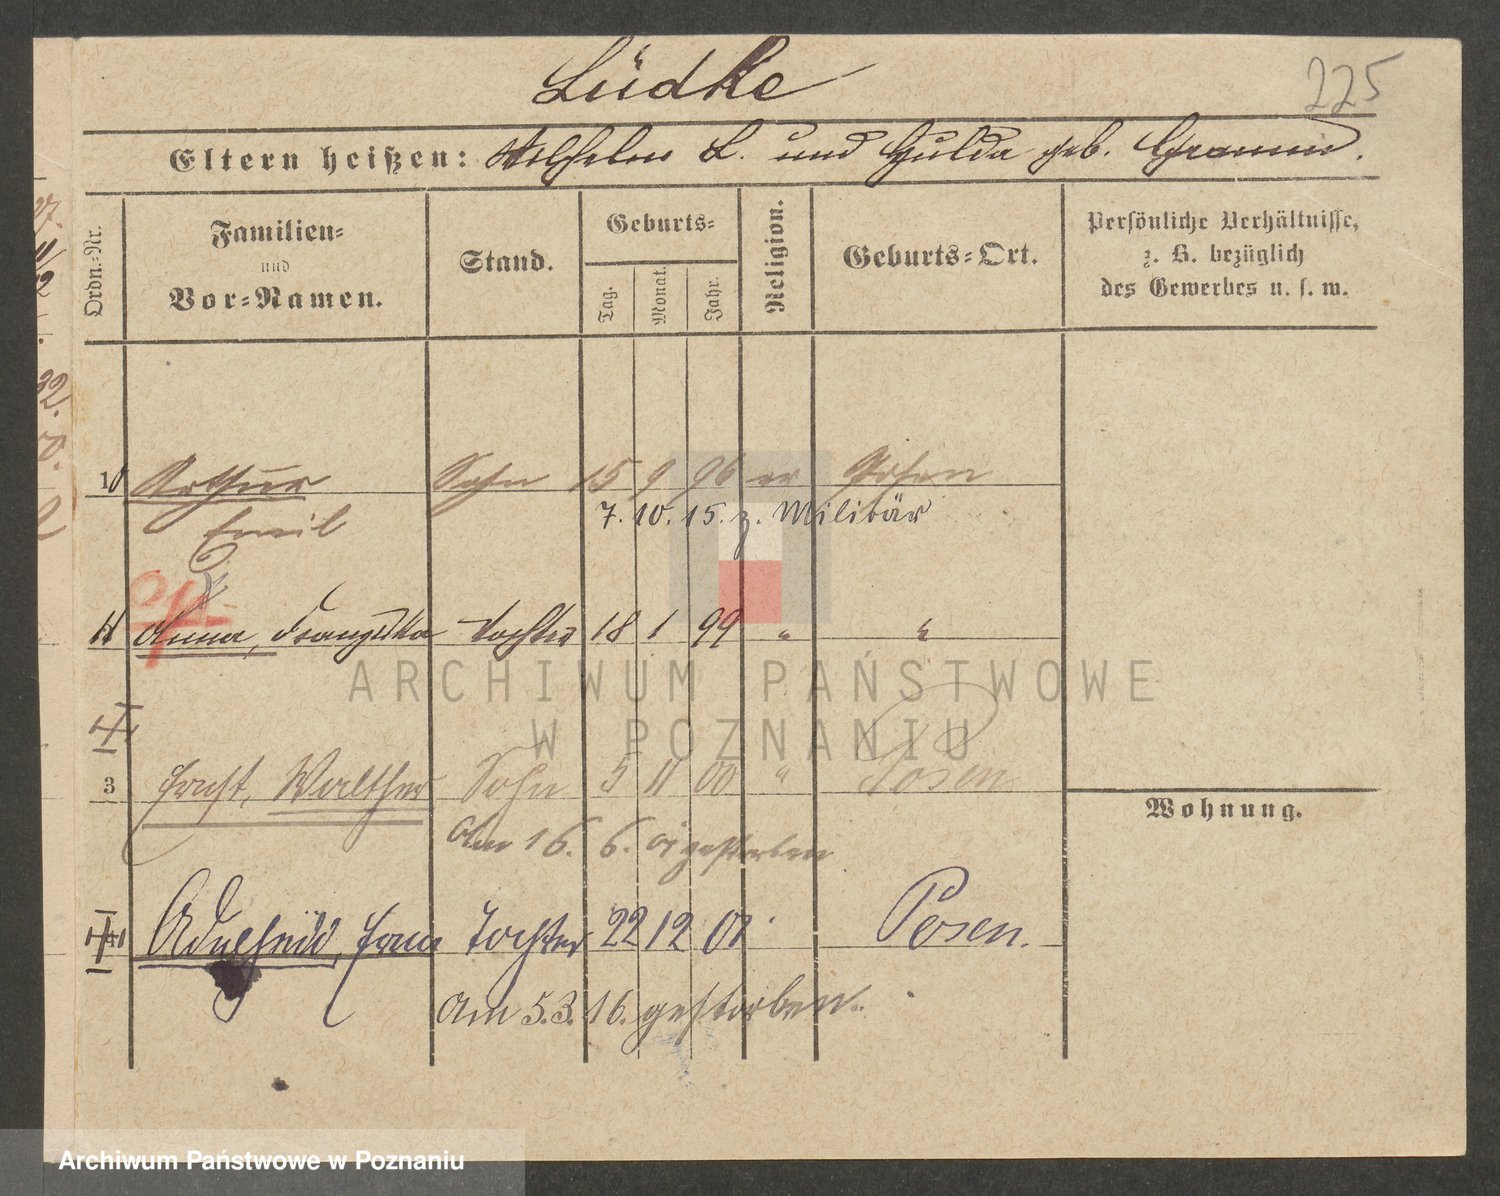 Lüdke
225
Eltern heißen: Wilhelm L. und Hulda geb. Gramm.
Ordn.-Nr.
Familien-
und
Vor-Namen.
Stand.
Geburts-
Tag.
Monat.
Jahr.
Religion.
Geburts-Ort.
Persönliche Verhältnisse,
z. B. bezüglich
des Gewerbes u. s. w.
Arthur Sohn 15 9 96 ev Posen
Emil
7. 10. 15. z. Militär
Anna, Franziska Tochter 18 1 99 " "
ARCHIWUM PAŃSTWOWE
W POZNANIU
3 Ernst, Walther Sohn 5 11 00 " Posen
Am 16. 6. 01 gestorben
Wohnung.
Adelheid, Erna Tochter 22 12 01. Posen.
Am 5.3. 16. gestorben.
Archiwum Państwowe w Poznaniu